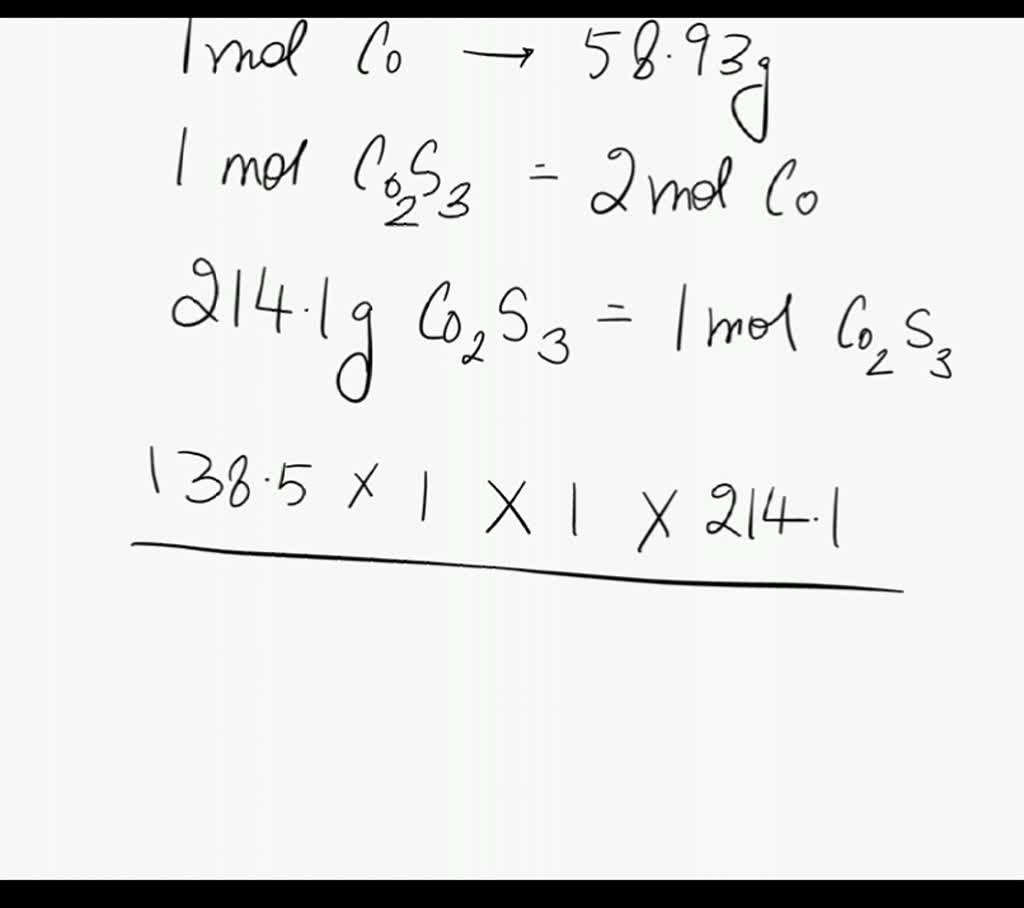 1 mol Co → 58.93g
1 mol Co₂S₃ = 2 mol Co
214.1g Co₂S₃ = 1 mol Co₂S₃
138.5 × 1 × 1 × 214.1